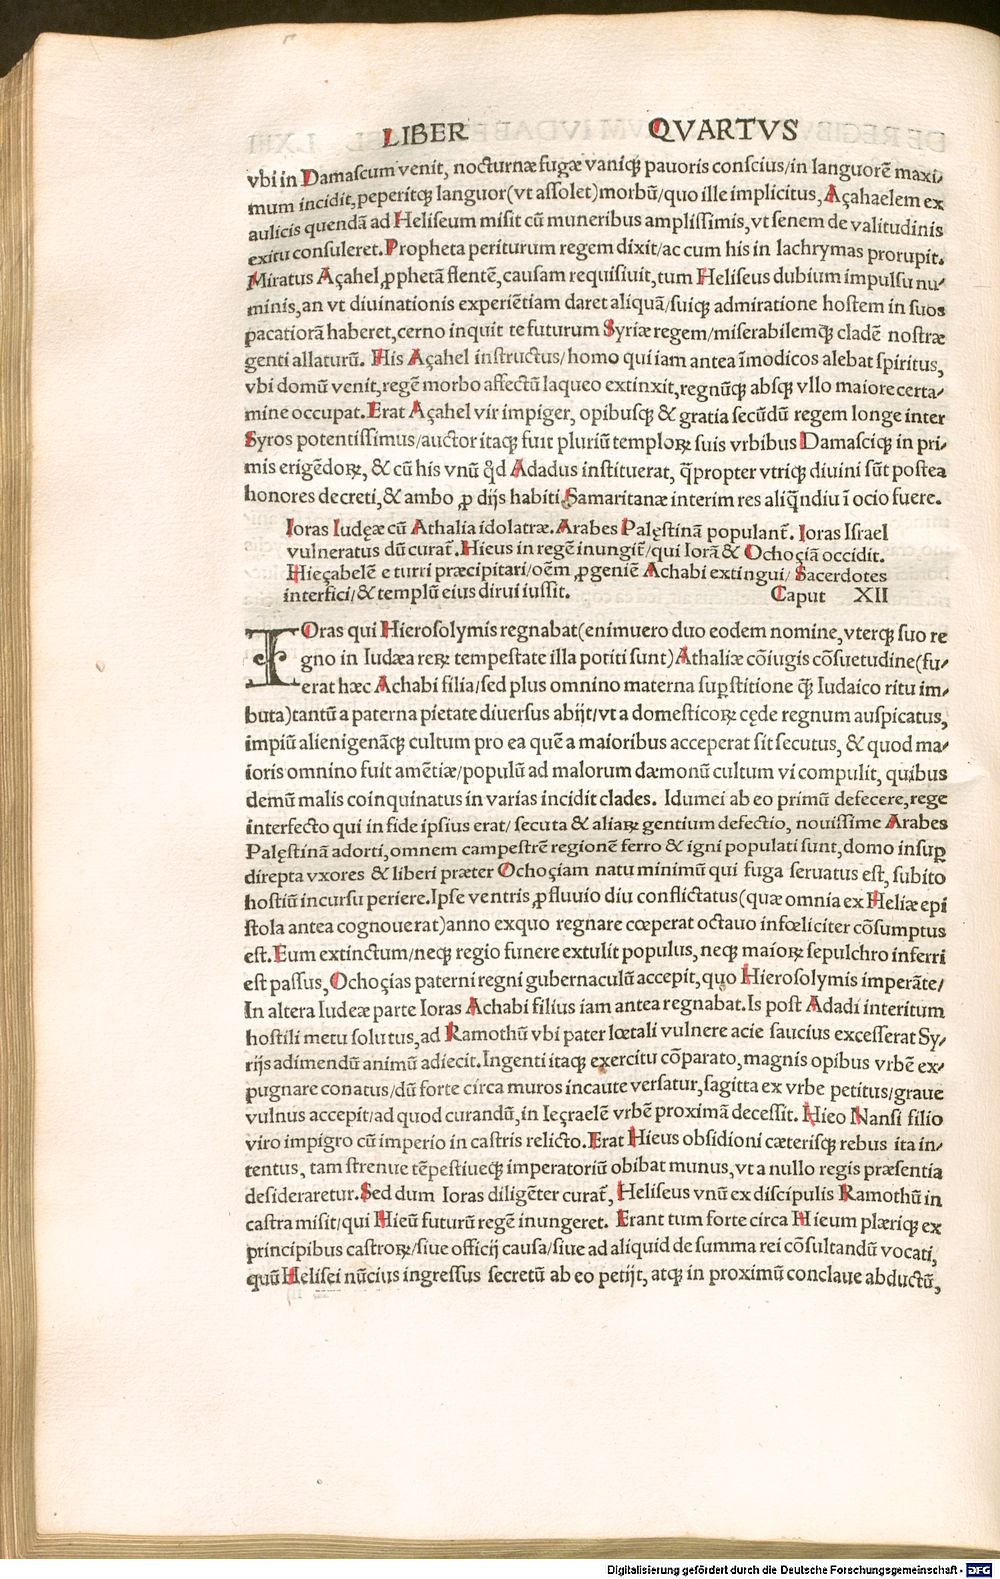 LIBER QVARTVS
vbi in Damascum venit, nocturnæ fugæ vaniqꝫ pauoris conscius/in languorē maxi⸗
mum incidit, peperitqꝫ languor(vt assolet)morbū/quo ille implicitus, Açahaelem ex
aulicis quendā ad Heliseum misit cū muneribus amplissimis, vt senem de valitudinis
exitu consuleret. Propheta periturum regem dixit/ac cum his in lachrymas prorupit.
Miratus Açahel, ꝓphetā flentē, causam requisiuit, tum Heliseus dubium impulsu nu⸗
minis, an vt diuinationis experiētiam daret aliquā/suiqꝫ admiratione hostem in suos
pacatiorā haberet, cerno inquit te futurum Syriæ regem/miserabilemqꝫ cladē nostræ
genti allaturū. His Açahel instructus/homo qui iam antea īmodicos alebat spiritus,
vbi domū venit, regē morbo affectū laqueo extinxit, regnūqꝫ absqꝫ vllo maiore certa⸗
mine occupat. Erat Açahel vir impiger, opibusqꝫ & gratia secūdū regem longe inter
Syros potentissimus/auctor itaqꝫ fuit pluriū temploꝝ suis vrbibus Damasciqꝫ in pri⸗
mis erigēdoꝝ, & cū his vnū qd̄ Adadus instituerat, q̄propter vtriqꝫ diuini sūt postea
honores decreti, & ambo ꝓ dijs habiti. Samaritanæ interim res aliq̄ndiu ī ocio fuere.
Ioras Iudęæ cū Athalia idolatræ. Arabes Palęstinā populant̄. Ioras Israel
vulneratus dū curat̄. Hieus in regē inungit̄/qui Iorā & Ochoçiā occidit.
Hieçabelē e turri præcipitari/oēm ꝓgeniē Achabi extingui/ Sacerdotes
interfici/& templū eius dirui iussit. Caput XII
IOras qui Hierosolymis regnabat(enimuero duo eodem nomine, vterqꝫ suo re
gno in Iudæa reꝝ tempestate illa potiti sunt)Athaliæ cōiugis cōsuetudine(fu⸗
erat hæc Achabi filia/sed plus omnino materna suꝑstitione q̄ꝫ Iudaico ritu im⸗
buta)tantū a paterna pietate diuersus abijt/vt a domesticoꝝ cęde regnum auspicatus,
impiū alienigenāqꝫ cultum pro ea quē a maioribus acceperat sit secutus, & quod ma⸗
ioris omnino fuit amētiæ/populū ad malorum dæmonū cultum vi compulit, quibus
demū malis coinquinatus in varias incidit clades. Idumei ab eo primū defecere, rege
interfecto qui in fide ipsius erat/ secuta & aliaꝝ gentium defectio, nouissime Arabes
Palęstinā adorti, omnem campestrē regionē ferro & igni populati sunt, domo insuꝑ
direpta vxores & liberi præter Ochoçiam natu minimū qui fuga seruatus est, subito
hostiū incursu periere. Ipse ventris ꝓfluuio diu conflictatus(quæ omnia ex Heliæ epi
stola antea cognouerat)anno exquo regnare cœperat octauo infœliciter cōsumptus
est. Eum extinctum/neqꝫ regio funere extulit populus, neqꝫ maioꝝ sepulchro inferri
est passus, Ochoçias paterni regni gubernaculū accepit, quo Hierosolymis imperāte/
In altera Iudeæ parte Ioras Achabi filius iam antea regnabat. Is post Adadi interitum
hostili metu solutus, ad Ramothū vbi pater lœtali vulnere acie saucius excesserat Sy⸗
rijs adimendū animū adiecit. Ingenti itaqꝫ exercitu cōparato, magnis opibus vrbē ex⸗
pugnare conatus/dū forte circa muros incaute versatur, sagitta ex vrbe petitus/graue
vulnus accepit/ad quod curandū, in Ieçraelē vrbē proximā decessit. Hieo Nansi filio
viro impigro cū imperio in castris relicto. Erat Hieus obsidioni cæterisqꝫ rebus ita in⸗
tentus, tam strenue tēpestiueqꝫ imperatoriū obibat munus, vt a nullo regis præsentia
desideraretur. Sed dum Ioras diligēter curat̄, Heliseus vnū ex discipulis Ramothū in
castra misit/qui Hieū futurū regē inungeret. Erant tum forte circa Hieum plæriqꝫ ex
principibus castroꝝ/siue officij causa/siue ad aliquid de summa rei cōsultandū vocati,
quū Helisei nūcius ingressus secretū ab eo petijt, atqꝫ in proximū conclaue abductū,
Digitalisierung gefördert durch die Deutsche Forschungsgemeinschaft - DFG